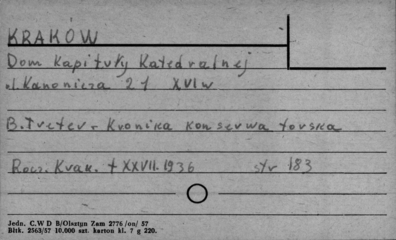 KRAKÓW
Dom Kapituły Katedralnej
ul. Kanonicza 21 XVI w
B. Treter - Kronika konserwatorska
Rocz. Krak. t XXVII. 1936 str 183
Jedn. C.W D B/Olsztyn Zam 2776 /on/ 57
Bltk. 2563/57 10.000 szt. karton kl. ? g 220.